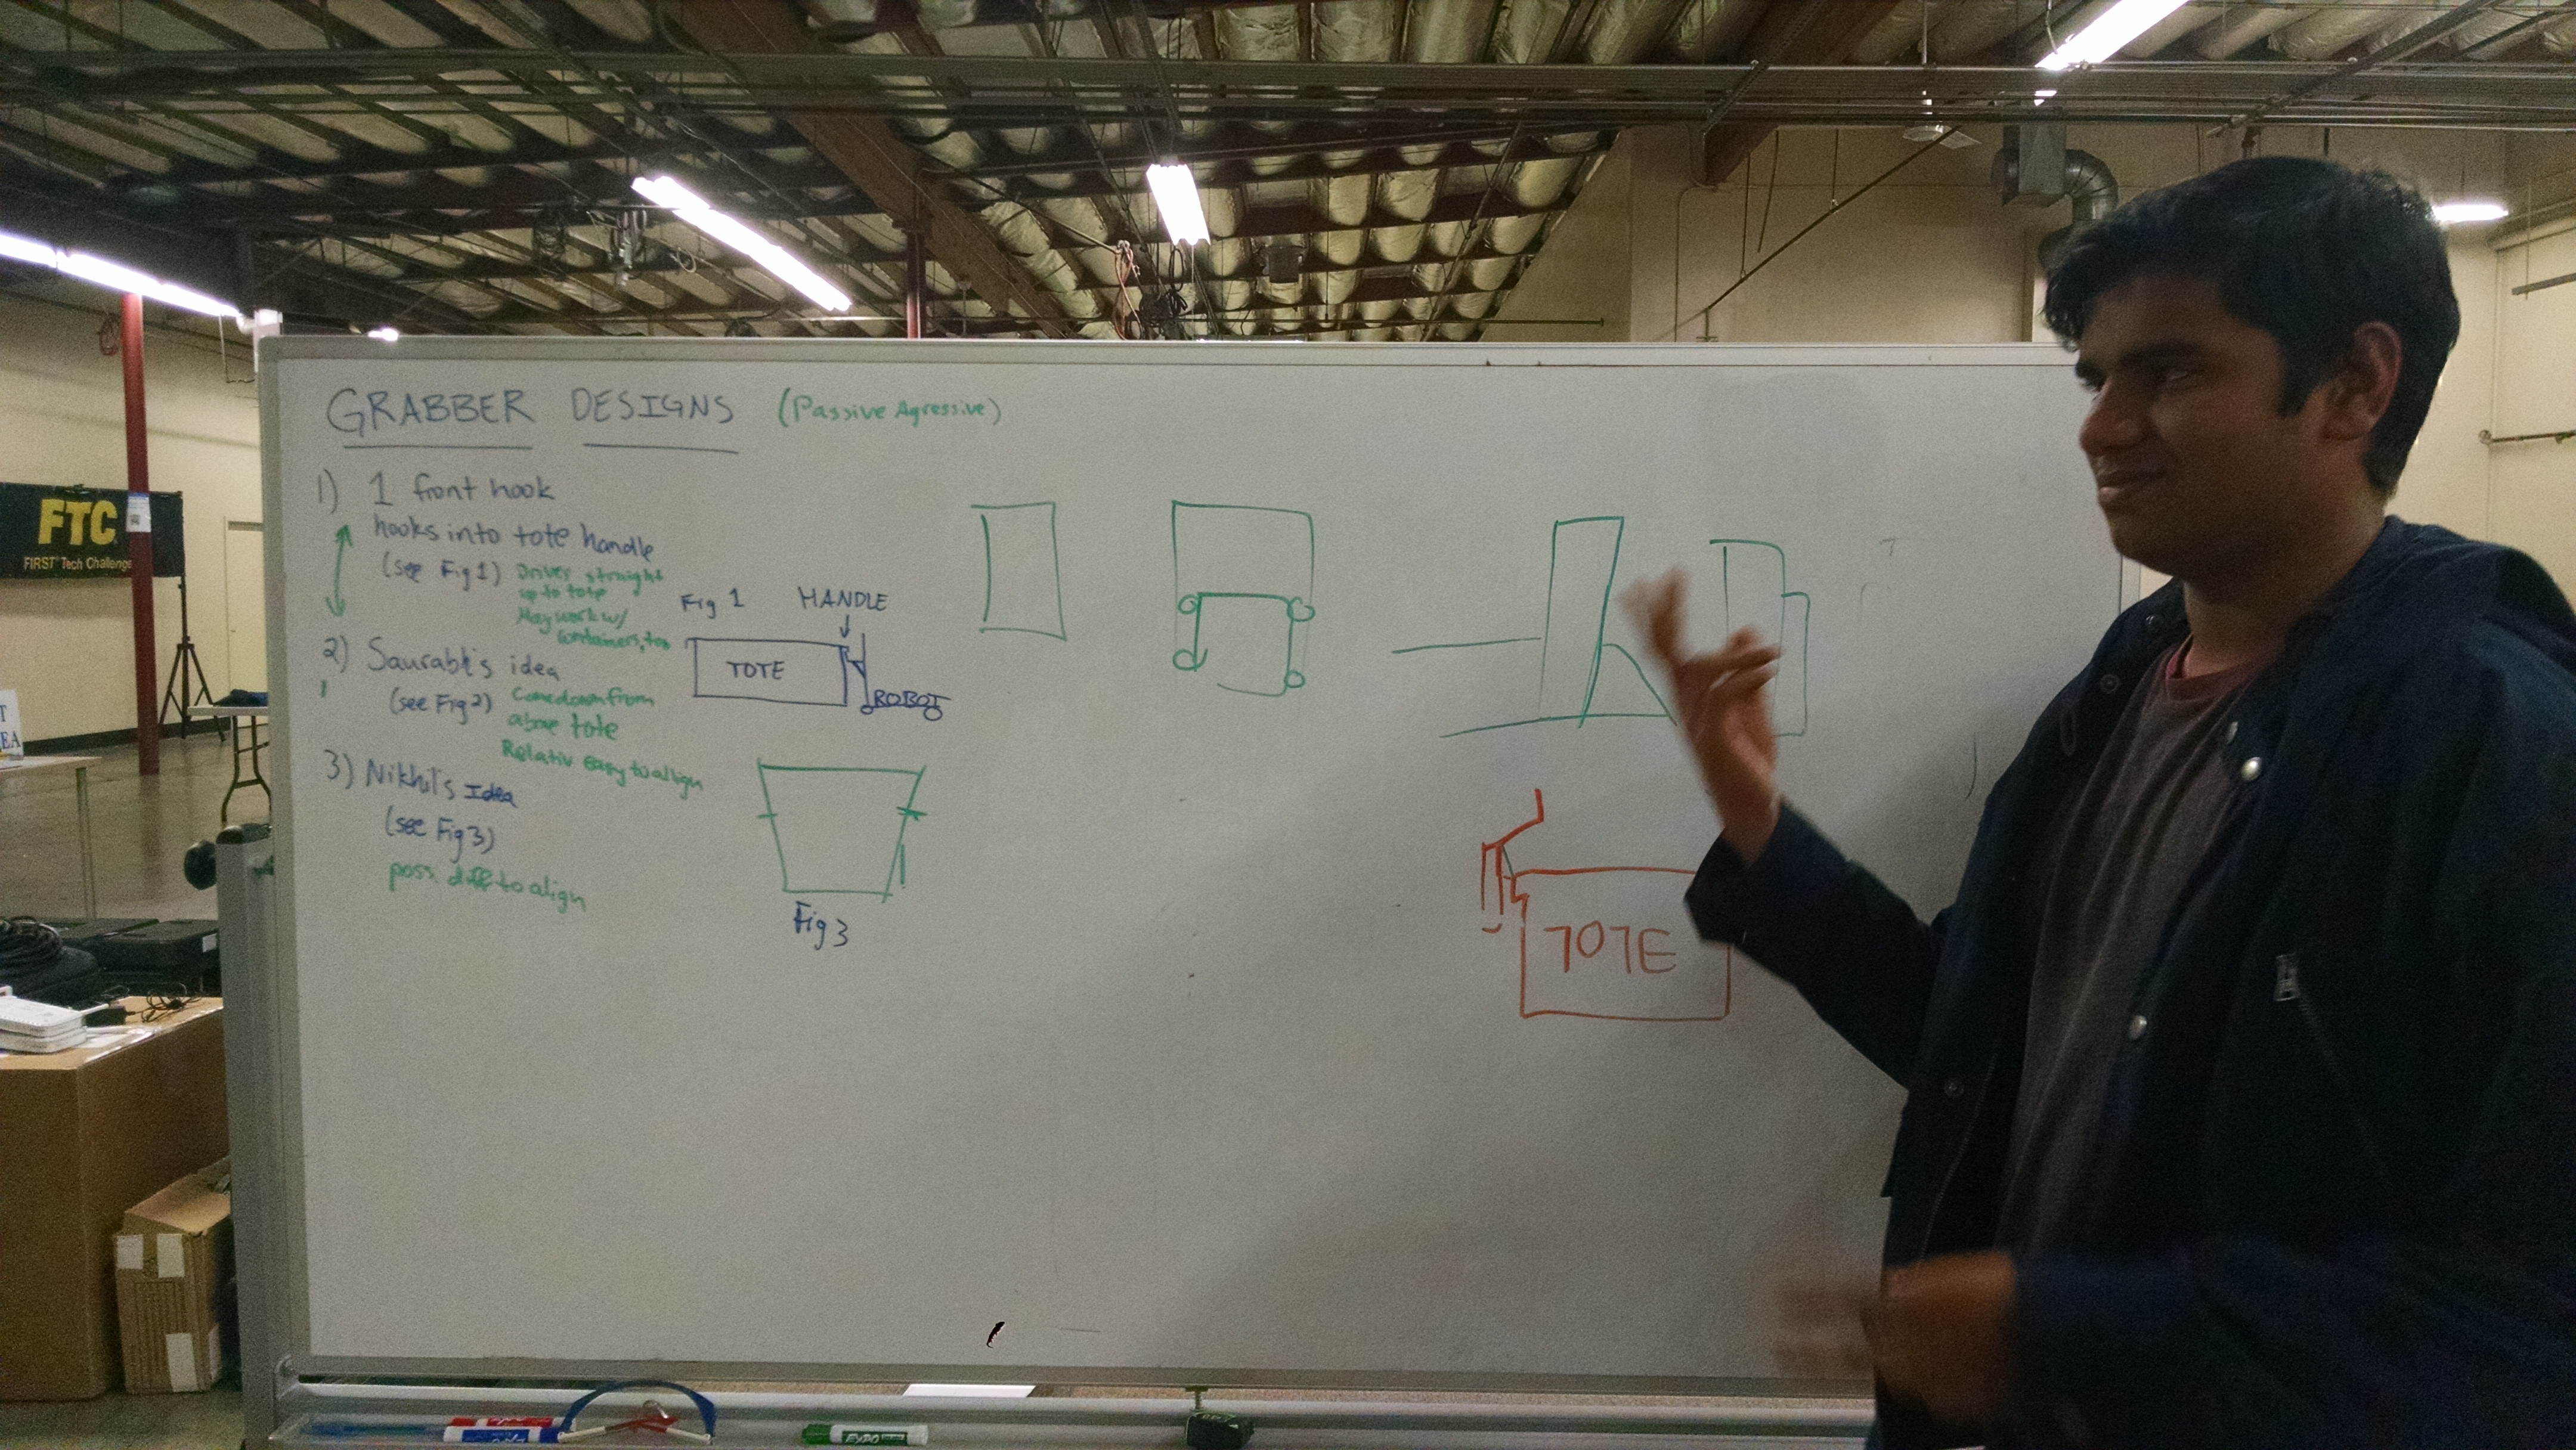 GRABBER DESIGNS (Passive Agressive)
1) 1 front hook
hooks into tote handle
(see Fig 1)
Driver straight
up to tote
May work w/
containers, too
2) Saurabh's idea
(see Fig 2)
Come down from
above tote
Relativ easy to align
3) Nikhil's Idea
(see Fig 3)
poss. diff to align
Fig 1
HANDLE
TOTE
ROBOT
Fig 3
TOTE
FTC
FIRST Tech Challenge
T
EA
EXPO